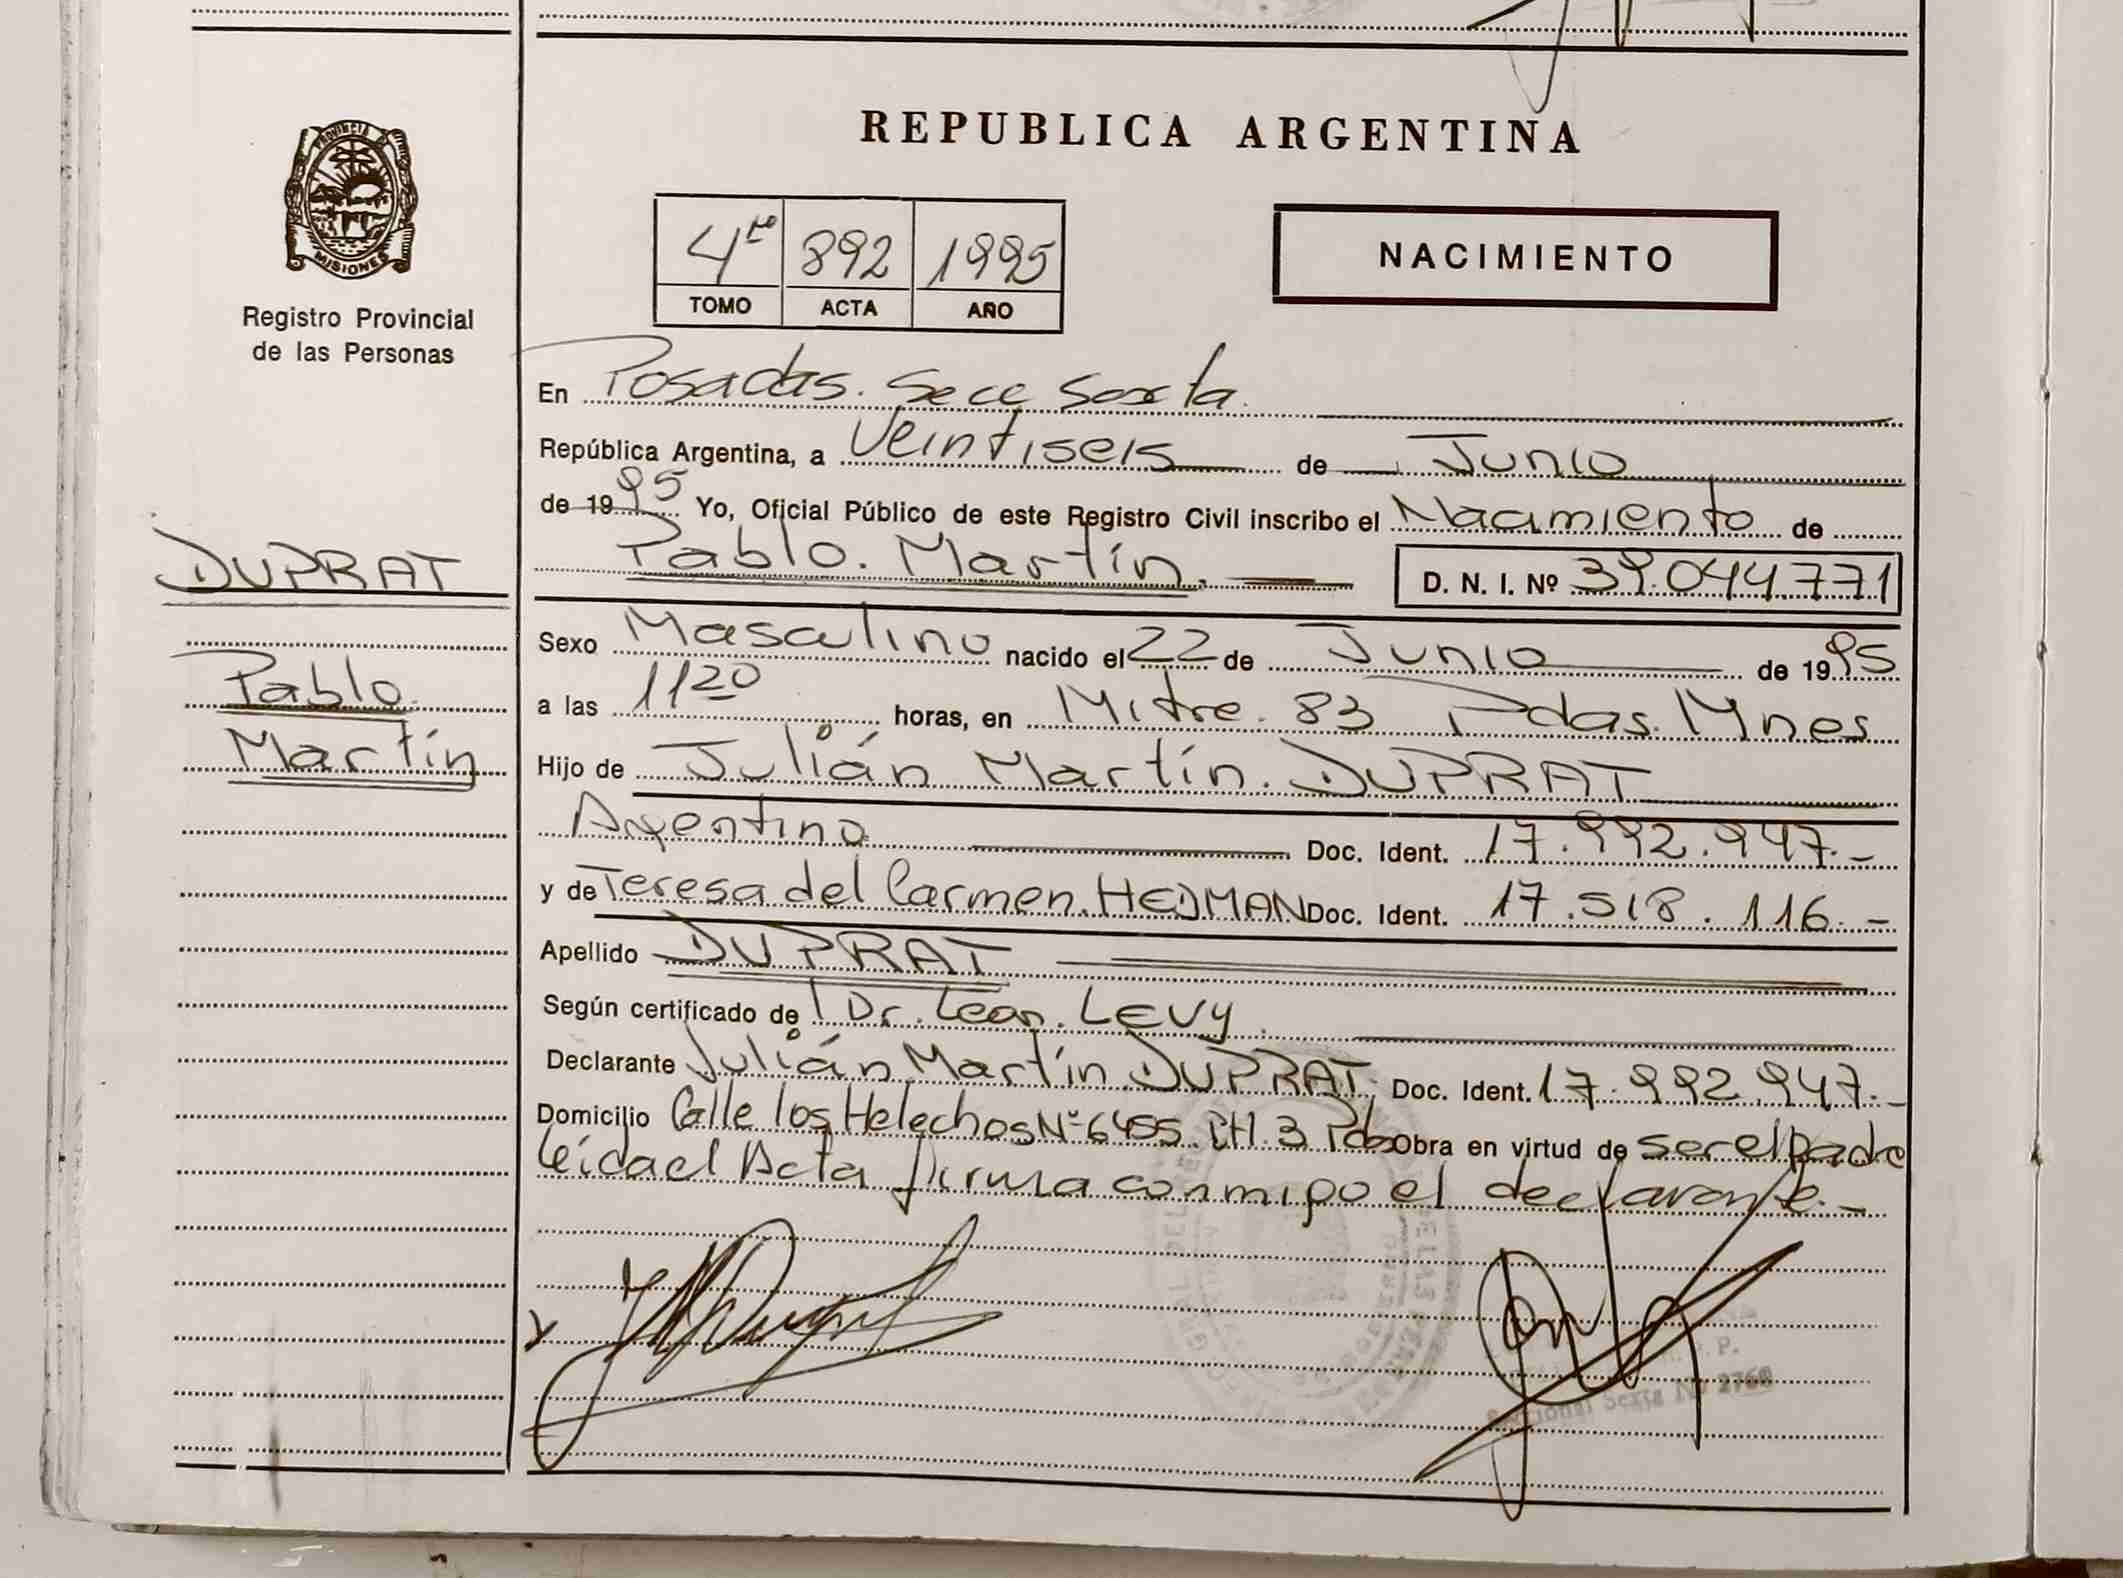 PROVINCIA DE
MISIONES
Registro Provincial
de las Personas
DUPRAT
Pablo
Martín
REPUBLICA ARGENTINA
4to 892 1995
TOMO ACTA AÑO
NACIMIENTO
En Posadas. Secc Sexta.
República Argentina, a Veintiseis de Junio
de 1995 Yo, Oficial Público de este Registro Civil inscribo el Nacimiento de
Pablo. Martín. D. N. I. Nº 39.044.771
Sexo Masculino nacido el 22 de Junio de 1995
a las 1120 horas, en Mitre. 83 Pdas. Mnes
Hijo de Julián Martín. DUPRAT
Argentino Doc. Ident. 17.992.947.-
y de Teresa del Carmen. HEDMAN Doc. Ident. 17.518.116.-
Apellido DUPRAT
Según certificado de Dr. Leon. LEVY.
Declarante Julián Martín DUPRAT, Doc. Ident. 17.992.947.-
Domicilio Calle los Helechos Nº 6455 CH. 3 Pdas Obra en virtud de ser el padre
leída el Acta firma conmigo el declarante.-
Seccional Sexta Nº 2768